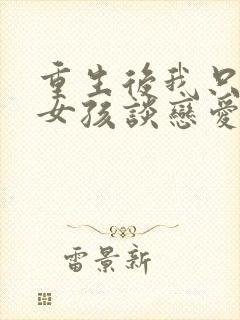 重生後我只
女孩談戀愛
雷景新